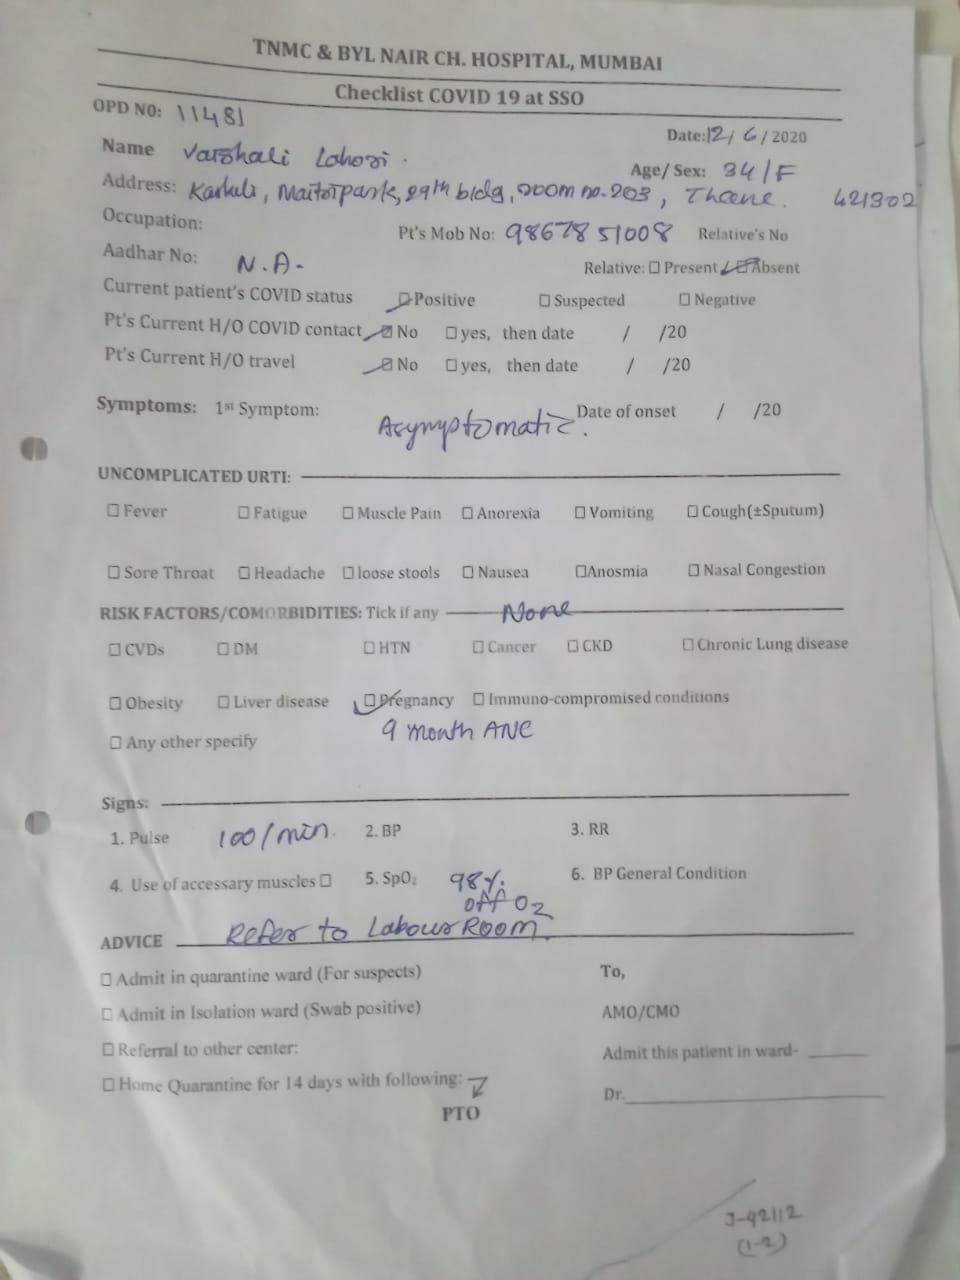 TNMC & BYL NAIR CH. HOSPITAL, MUMBAI
Checklist COVID 19 at SSO
OPD NO: 11481
Date: 12/6/2020
Name Varshali Lahori.
Age/ Sex: 34/F
Address: Karheli, Maitorpark, 29th bldg, room no-203, Thane. 421302
Occupation:
Pt's Mob No: 9867851008 Relative's No
Aadhar No: N.A-
Relative: ☐ Present ☑ Absent
Current patient's COVID status ☑ Positive ☐ Suspected ☐ Negative
Pt's Current H/O COVID contact ☑ No ☐ yes, then date / /20
Pt's Current H/O travel ☑ No ☐ yes, then date / /20
Symptoms: 1st Symptom: Asymptomatic. Date of onset / /20
UNCOMPLICATED URTI:
☐ Fever ☐ Fatigue ☐ Muscle Pain ☐ Anorexia ☐ Vomiting ☐ Cough(±Sputum)
☐ Sore Throat ☐ Headache ☐ loose stools ☐ Nausea ☐Anosmia ☐ Nasal Congestion
RISK FACTORS/COMORBIDITIES: Tick if any None
☐ CVDs ☐ DM ☐ HTN ☐ Cancer ☐ CKD ☐ Chronic Lung disease
☐ Obesity ☐ Liver disease ☑ Pregnancy ☐ Immuno-compromised conditions
9 month ANC
☐ Any other specify
Signs:
1. Pulse 100/min. 2. BP 3. RR
4. Use of accessary muscles ☐ 5. SpO₂ 98% 6. BP General Condition
off O2
ADVICE Refer to Labour Room.
☐ Admit in quarantine ward (For suspects) To,
☐ Admit in Isolation ward (Swab positive) AMO/CMO
☐ Referral to other center: Admit this patient in ward-
☐ Home Quarantine for 14 days with following: Dr.
PTO
J-42112
(1-2)